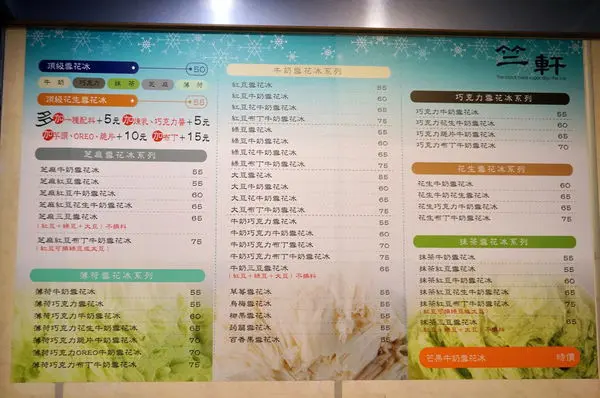 頂級雪花冰 50
牛奶 巧克力 抹茶 芝麻 薄荷
頂級花生雪花冰 55
多加一種配料+5元 加煉乳、巧克力醬+5元
加芋頭、OREO、脆片+10元 加布丁+15元
芝麻雪花冰系列
芝麻牛奶雪花冰 55
芝麻紅豆雪花冰 55
芝麻紅豆牛奶雪花冰 60
芝麻紅豆花生雪花冰 65
芝麻三豆雪花冰 65
(紅豆+綠豆+大豆)不換料
芝麻紅豆布丁牛奶雪花冰 75
(紅豆可換綠豆或大豆)
薄荷雪花冰系列
薄荷牛奶雪花冰 55
薄荷巧克力雪花冰 55
薄荷巧克力牛奶雪花冰 60
薄荷巧克力花生雪花冰 65
薄荷巧克力脆片牛奶雪花冰 70
薄荷巧克力OREO牛奶雪花冰 70
薄荷巧克力布丁牛奶雪花冰 75
牛奶雪花冰系列
紅豆雪花冰 55
紅豆牛奶雪花冰 60
紅豆花生牛奶雪花冰 65
紅豆布丁牛奶雪花冰 75
綠豆雪花冰 55
綠豆牛奶雪花冰 60
綠豆花生牛奶雪花冰 65
綠豆布丁牛奶雪花冰 75
大豆雪花冰 55
大豆牛奶雪花冰 60
大豆花生牛奶雪花冰 65
大豆布丁牛奶雪花冰 75
牛奶巧克力雪花冰 60
牛奶巧克力布丁雪花冰 70
牛奶花生布丁雪花冰 75
牛奶三豆雪花冰 65
(紅豆+綠豆+大豆)不換料
草莓雪花冰 55
烏梅雪花冰 55
椰果雪花冰 55
蒟蒻雪花冰 55
百香果雪花冰 55
竺軒
巧克力雪花冰系列
巧克力牛奶雪花冰 55
巧克力花生牛奶雪花冰 60
巧克力脆片牛奶雪花冰 65
巧克力布丁牛奶雪花冰 70
花生雪花冰系列
花生牛奶雪花冰 60
花生紅豆牛奶雪花冰 65
花生巧克力牛奶雪花冰 65
花生布丁牛奶雪花冰 75
抹茶雪花冰系列
抹茶牛奶雪花冰 55
抹茶紅豆牛奶雪花冰 60
抹茶紅豆花生牛奶雪花冰 65
抹茶紅豆布丁牛奶雪花冰 75
(紅豆可換綠豆或大豆)
抹茶三豆雪花冰 65
(紅豆+綠豆+大豆)不換料
芒果牛奶雪花冰 特價